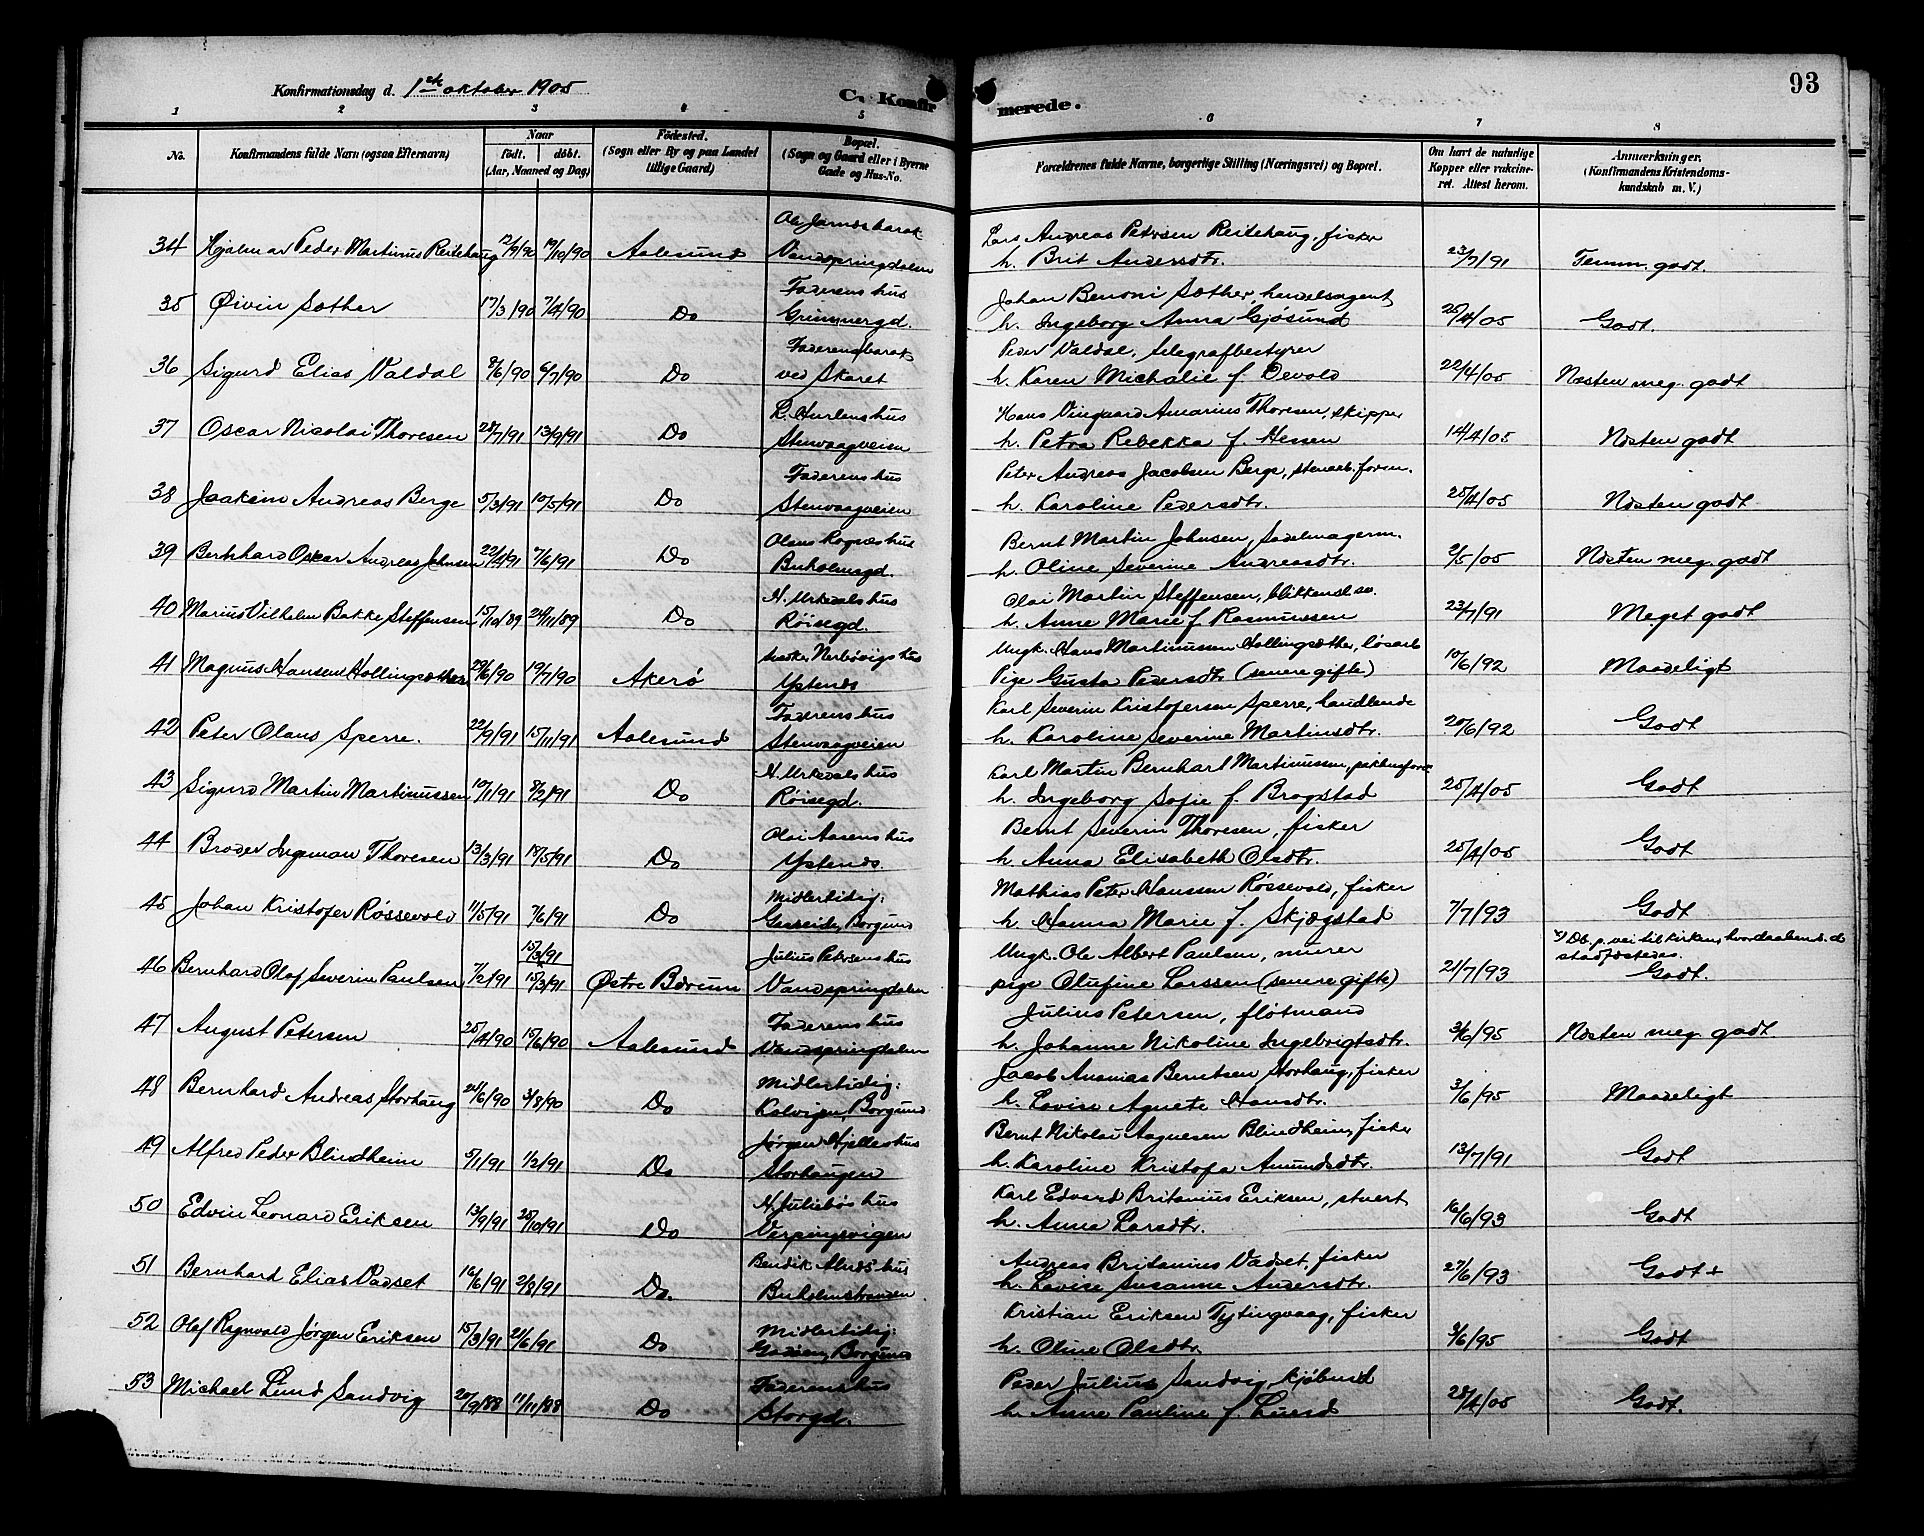 93
Konfirmationsdag d. 1ste oktober 1905
C. Konfirmerede.
1 2 3 4 5 6 7 8
No.
Konfirmandens fulde Navn (ogsaa Efternavn)
Naar
født. døbt.
(Aar, Maaned og Dag)
Fødested.
(Sogn eller By og paa Landet
tillige Gaard)
Bopæl.
(Sogn og Gaard eller i Byerne
Gade og Hus-No.
Forældrenes fulde Navne, borgerlige Stilling (Næringsvei) og Bopæl.
Om havt de naturlige
Kopper eller vakcine-
ret. Attest herom.
Anmærkninger.
(Konfirmandens Kristendoms-
kundskab m. V.)
Lars Andreas Petersen Reitehaug, fisker
34 Hjalmar Peder Martinus Reitehaug 12/9/90 19/10/90 Aalesund Vandspringdalen h. Brit Andersdtr. 23/7/91 Temm. godt.
Faderens hus Johan Benoni Sæther, handelsagent
35 Øivin Sæther 17/3/90 7/4/90 Do Grimmergd. h. Ingeborg Anna Gjøsund 25/4/05 Godt.
Faderens barak Peder Valdal, telegrafbestyrer
36 Sigurd Elias Valdal 8/6/90 6/7/90 Do ved Skaret h. Karen Michalie f. Devold 22/4/05 Næsten meg. godt
Hans Vingaard Amarius Thoresen, skipper
37 Oscar Nicolai Thoresen 28/7/91 13/9/91 Do Stenvaagveien h. Petra Rebekka f. Hessen 14/4/05 Næsten godt
Faderens hus Peter Andreas Jacobsen Berge, stenarb. form.
38 Joakim Andreas Berge 5/3/91 10/5/91 Do Stenvaagveien h. Karoline Pedersdtr. 25/4/05 Næsten godt
Olaus Rognes hus Bernt Martin Johnsen, sadelmagerm.
39 Bernhard Oskar Andreas Johnsen 22/4/91 7/6/91 Do Buholmsgd. h. Oline Severine Andreasdtr. 2/5/05 Næsten meg. godt
H. Urkedals hus Olai Martin Steffensen, blikkensl. sv.
40 Marius Vilhelm Bakke Steffensen 15/10/89 24/11/89 Do Røisegd. h. Anne Marie f. Rasmussen 23/7/91 Meget godt
Ungk. Hans Martinussen Hollingsæther, løsarb
41 Magnus Hansen Hollingsæther 29/6/90 19/7/90 Akerø Ystenes Pige Gusta Pedersdtr (senere gifte) 10/6/92 Maadeligt
Faderens hus Karl Severin Kristofersen Sperre, handlende
42 Peter Olaus Sperre. 22/9/91 15/11/91 Aalesund Stenvaagveien h. Karoline Severine Martinsdtr. 20/6/92 Godt
H. Urkedals hus Karl Martin Bernhart Martinussen, pakhusform
43 Sigurd Martin Martinussen 10/1/91 8/2/91 Do Røisegd. h. Ingeborg Sofie f. Brogstad 25/4/05 Godt
Olai Aasens hus Bernt Severin Thoresen, fisker
44 Broder Ingeman Thoresen 13/3/91 18/5/91 Do Ystenes. h Anna Elisabeth Olsdtr. 25/4/05 Godt
Midlertidig: Mathias Peter Hanssen Røssevold, fisker
45 Johan Kristofer Røssevold 11/5/91 7/6/91 Do Gaaseide, Borgund h. Hanna Marie f. Skjægstad 7/7/93 Godt
15/3/91 Julius Petersens hus Ungk. Ole Albert Paulsen, murer Db. p. vei til kirken, hvor daabens
stadfæstedes.
46 Bernhard Olaf Severin Paulsen 7/2/91 15/3/91 Østre Bærum Vandspringdalen pige Olufine Larssen (senere gifte) 21/7/93 Godt.
Faderens hus Julius Petersen, fløtmand
47 August Petersen 25/4/90 15/6/90 Aalesund Vandspringdalen h. Johanne Nikoline Ingebrigtsdtr. 3/6/95 Næsten meg. godt
Midlertidig: Jacob Ananias Berntsen Storhaug, fisker
48 Bernhard Andreas Storhaug 24/6/90 3/8/90 Do Kalvigen, Borgund h. Lovise Agnete Hansdtr. 3/6/95 Maadeligt
Jørgen Hjelles hus Bernt Nikolai Aagnesen Blindheim, fisker
49 Alfred Peder Blindheim 5/1/91 1/2/91 Do Storhaugen h. Karoline Kristofa Amundsdtr. 13/7/91 Godt
H. Juliebøs hus Karl Edvard Britanius Eriksen, stuert
50 Edvin Leonard Eriksen 13/9/91 25/10/91 Do Verpingsvigen h. Anna Larsdtr. 16/6/93 Godt
Bendik Alnes hus Andreas Britanius Vadset, fisker
51 Bernhard Elias Vadset 16/6/91 2/8/91 Do. Buholmstranden h. Lovise Susanne Andersdtr. 27/6/93 Godt +
Midlertidig: Kristian Eriksen Tytingvaag, fisker
52 Olaf Ragnvald Jørgen Eriksen 15/3/91 21/6/91 Do Borgund h. Oline Olsdtr. 3/6/95 Godt
Faderens hus Peder Julius Sandvig kjøbmd
53 Michael Lund Sandvig 20/9/88 11/11/88 Do Storgd. h. Anne Pauline f. Lund 28/4/05 Godt.